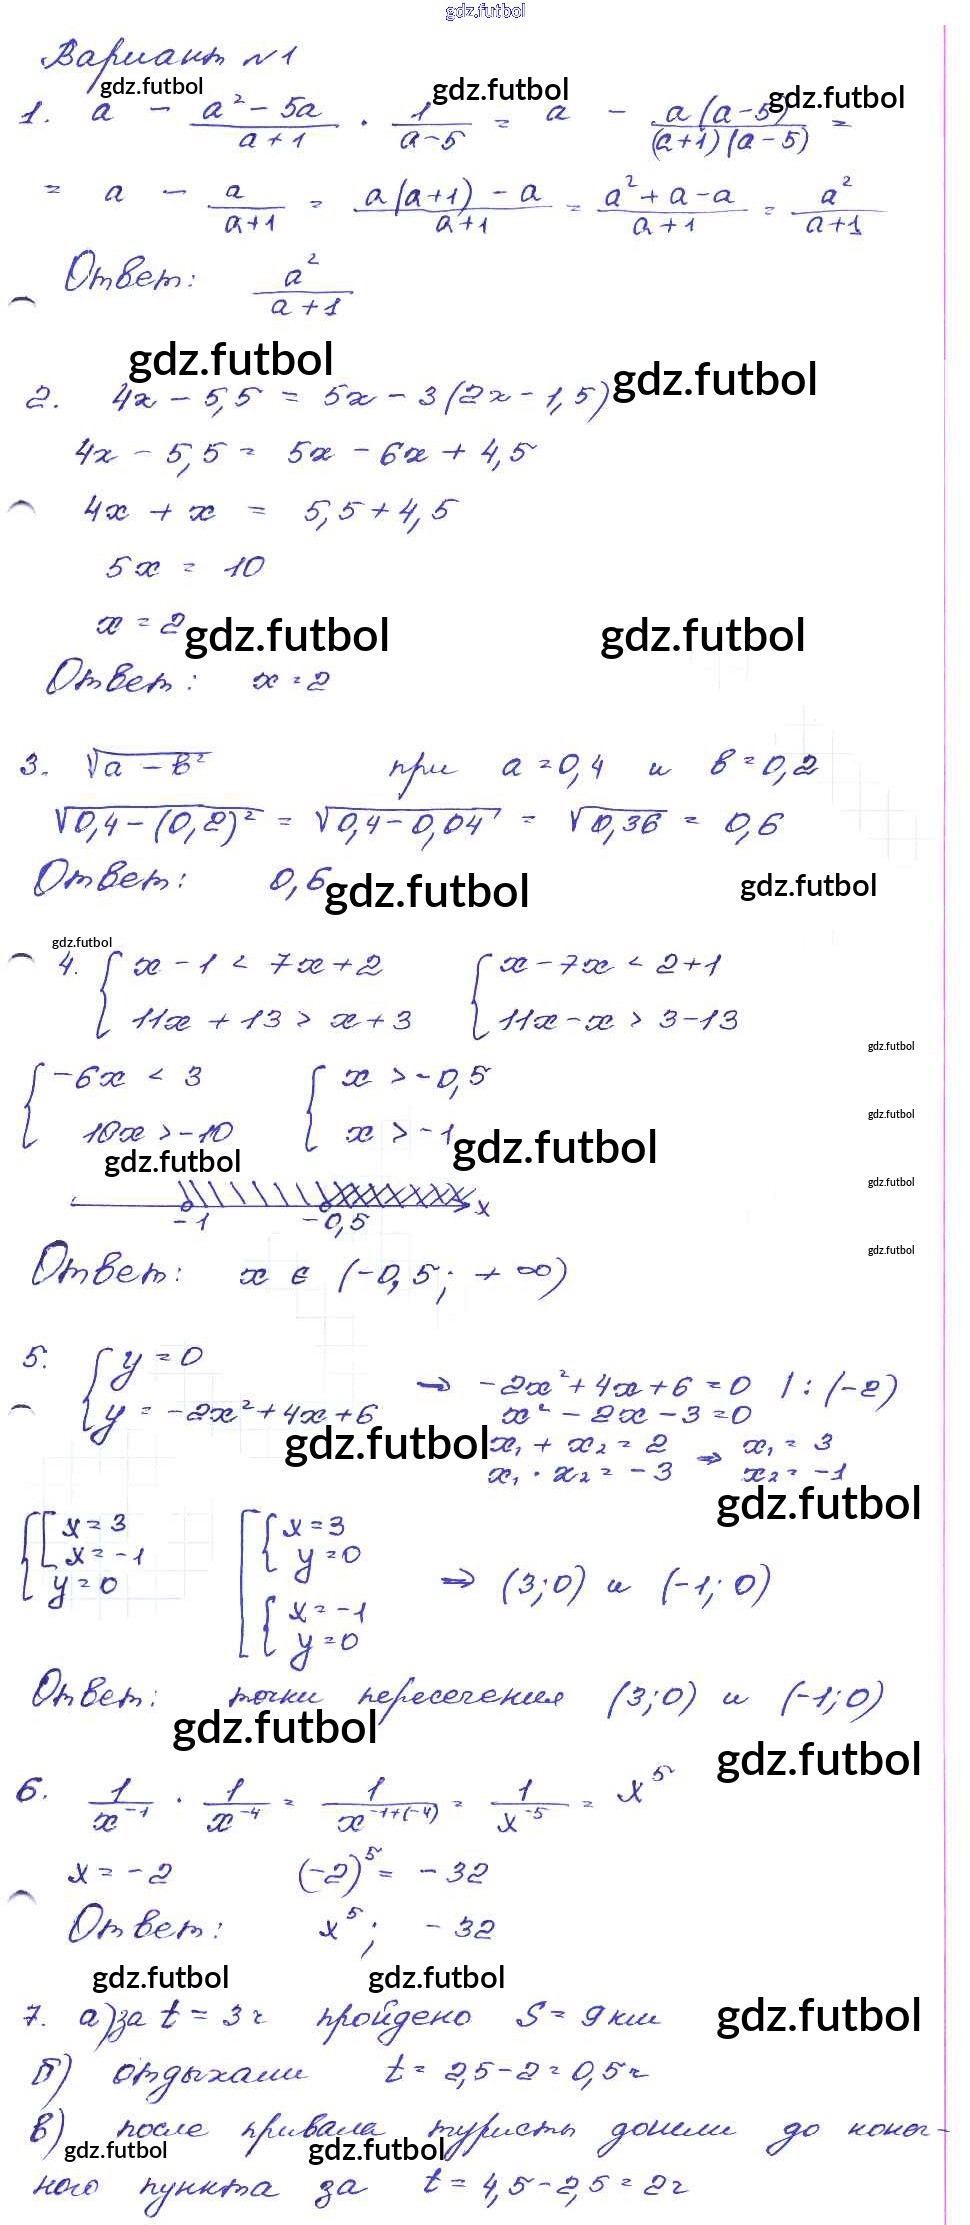 gdz.futbol
Вариант №1
gdz.futbol gdz.futbol gdz.futbol
1. a - (a² - 5a)/(a + 1) · 1/(a - 5) = a - a(a - 5)/((a+1)(a - 5)) =
= a - a/(a+1) = (a(a+1) - a)/(a+1) = (a² + a - a)/(a+1) = a²/(a+1)
Ответ: a²/(a+1)
gdz.futbol gdz.futbol
2. 4x - 5,5 = 5x - 3(2x - 1,5)
4x - 5,5 = 5x - 6x + 4,5
4x + x = 5,5 + 4,5
5x = 10
x = 2
gdz.futbol gdz.futbol
Ответ: x = 2
3. √(a - b²) при a = 0,4 и b = 0,2
√(0,4 - (0,2)²) = √(0,4 - 0,04) = √0,36 = 0,6
Ответ: 0,6
gdz.futbol gdz.futbol
gdz.futbol
4. { x - 1 < 7x + 2 { x - 7x < 2 + 1
11x + 13 > x + 3 11x - x > 3 - 13
gdz.futbol
{ -6x < 3 { x > -0,5
gdz.futbol
10x > -10 x > -1
gdz.futbol gdz.futbol
gdz.futbol
x
-1 -0,5
gdz.futbol
Ответ: x ∈ (-0,5; +∞)
5. { y = 0
y = -2x² + 4x + 6 → -2x² + 4x + 6 = 0 | : (-2)
x² - 2x - 3 = 0
gdz.futbol
x₁ + x₂ = 2 ⇒ x₁ = 3
x₁ · x₂ = -3 x₂ = -1
gdz.futbol
{ [ x = 3 [ { x = 3
x = -1 y = 0
y = 0 ⇒ (3; 0) и (-1; 0)
{ x = -1
y = 0
Ответ: точки пересечения (3; 0) и (-1; 0)
gdz.futbol gdz.futbol
6. 1/x⁻¹ · 1/x⁻⁴ = 1/x⁻¹⁺⁽⁻⁴⁾ = 1/x⁻⁵ = x⁵
x = -2 (-2)⁵ = -32
Ответ: x⁵; -32
gdz.futbol gdz.futbol gdz.futbol
7. а) за t = 3 ч пройдено S = 9 км
б) отдыхали t = 2,5 - 2 = 0,5 ч
в) после привала туристы дошли до конеч-
gdz.futbol gdz.futbol
ного пункта за t = 4,5 - 2,5 = 2 ч